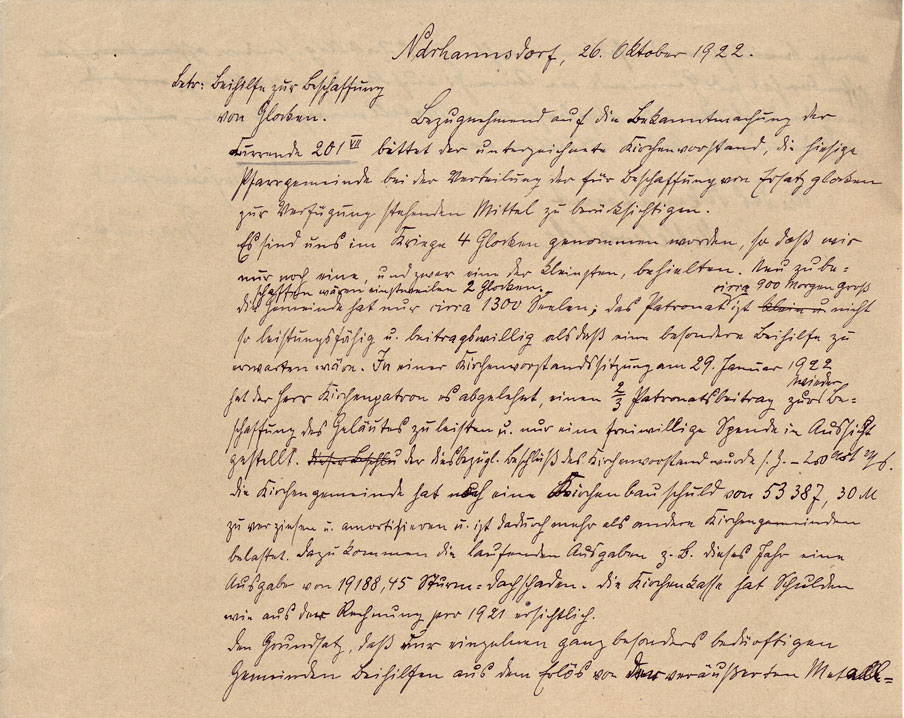 Ndrhannsdorf, 26. Oktober 1922.
Betr: Beihilfe zur Beschaffung
von Glocken.
Bezugnehmend auf die Bekanntmachung der
Kurrende 201 VII bittet der unterzeichnete Kirchenvorstand, die hiesige
Pfarrgemeinde bei der Verteilung der für Beschaffung von Ersatzglocken
zur Verfügung stehenden Mittel zu berücksichtigen.
Es sind uns im Kriege 4 Glocken genommen worden, so daß wir
nur noch eine, und zwar eine der kleinsten, behielten. Neu zu be=
schaffen wären einstweilen 2 Glocken. circa 900 Morgen groß
die Gemeinde hat nur circa 1300 Seelen; das Patronat ist klein u. nicht
so leistungsfähig u. beitragswillig als daß eine besondere Beihilfe zu
erwarten wäre. In einer Kirchenvorstandssitzung am 29. Januar 1922
wieder
hat der Herr Kirchenpatron es abgelehnt, einen 2/3 Patronatsbeitrag zur Be=
schaffung des Geläutes zu leisten u. nur eine freiwillige Spende in Aussicht
gestellt. dieser Beschlu der diesbezügl. Beschluß des Kirchenvorstand wurde s. Z.
die Kirchengemeinde hat noch eine Kirchenbauschuld von 53 387, 30 M
zu verzinsen u. amortisieren u. ist dadurch mehr als andere Kirchengemeinden
belastet. Dazu kommen die laufenden Ausgaben z. B. dieses Jahr eine
Ausgabe von 19188,45 Sturm=dachschaden. die Kirchenkasse hat Schulden
wie aus der Rechnung per 1921 ersichtlich.
den Grundsatz, daß nur einzelnen ganz besonders bedürftigen
Gemeinden Beihilfen aus dem Erlös von veräußerten Metall=